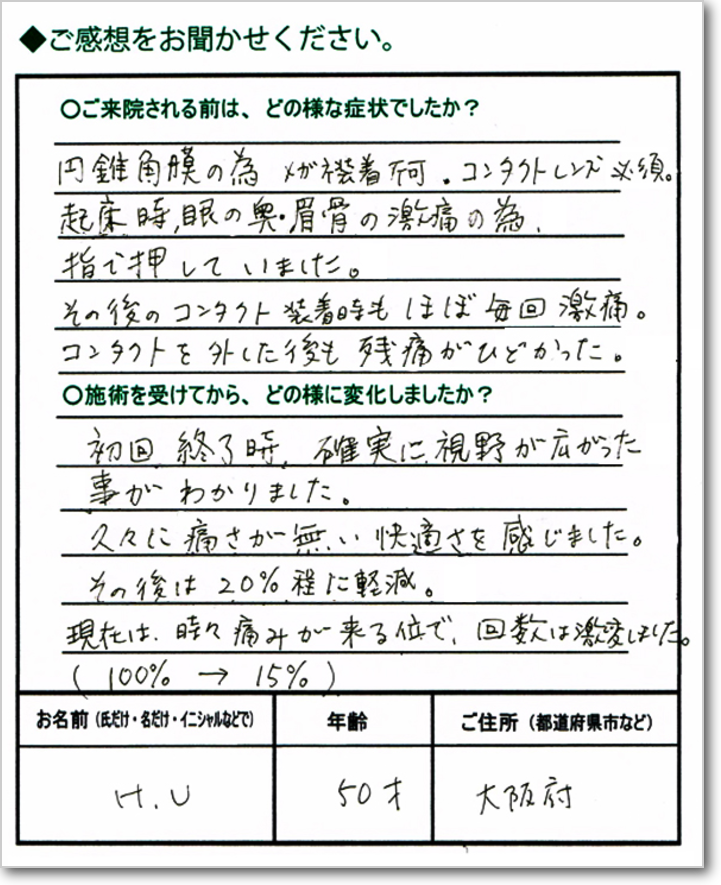 ◆ご感想をお聞かせください。
○ご来院される前は、どの様な症状でしたか？
円錐角膜の為 メガネ装着不可．コンタクトレンズ必須。
起床時,眼の奥・眉骨の激痛の為、
指で押していました。
その後のコンタクト装着時もほぼ毎回激痛。
コンタクトを外した後も残痛がひどかった。
○施術を受けてから、どの様に変化しましたか？
初回終了時、確実に視野が広がった
事がわかりました。
久々に痛さが無い快適さを感じました。
その後は20%程に軽減。
現在は、時々痛みが来る位で、回数は激変しました。
(100% → 15%)
お名前（氏だけ・名だけ・イニシャルなどで） 年齢 ご住所（都道府県市など）
H.U 50才 大阪府